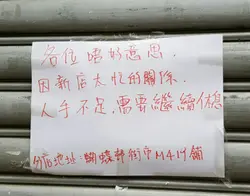 各位唔好意思.
因新店太忙的關係.
人手不足,需要繼續休息
分店地址:蝴蝶邨街市M414舖